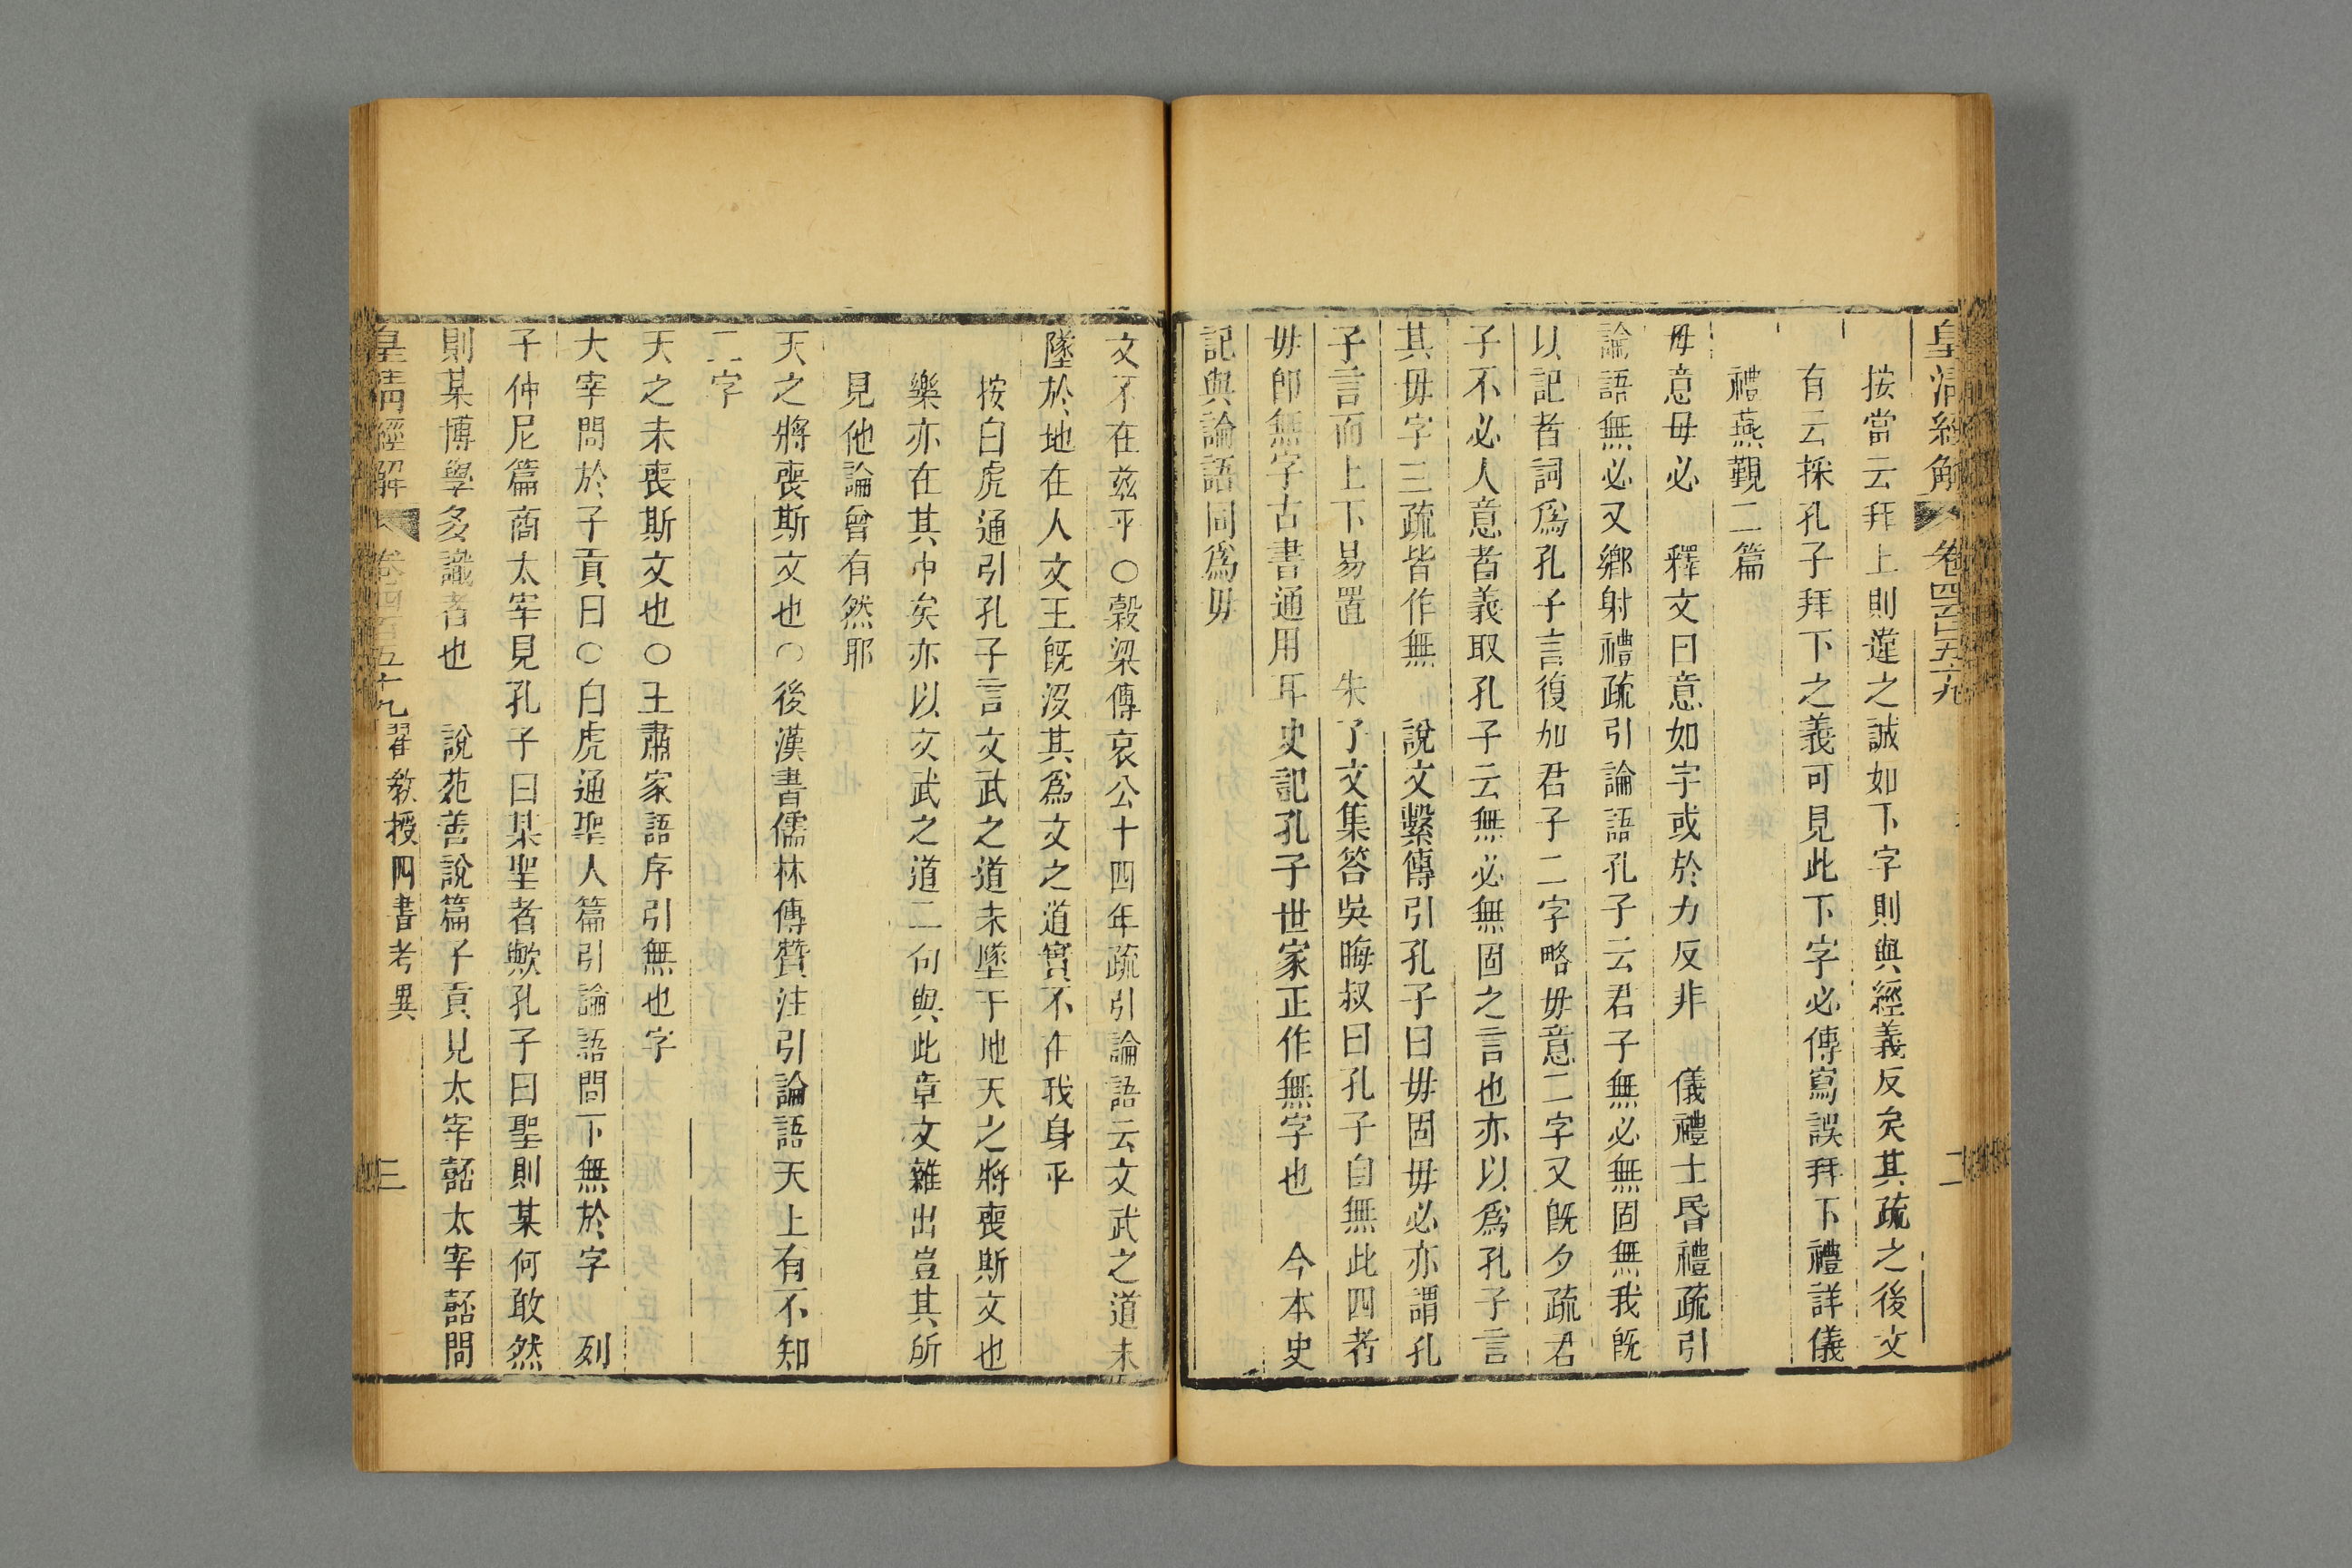 皇清經解 卷四百五十九 二
按當云拜上則違之誠如下字則與經義反矣其疏之後文
有云採孔子拜下之義可見此下字必傳寫誤拜下禮詳儀
禮燕覲二篇
毋意毋必 釋文曰意如字或於力反非 儀禮士昏禮疏引
論語無必又鄉射禮疏引論語孔子云君子無必無固無我旣
以記者詞爲孔子言復加君子二字略毋意二字又旣夕疏君
子不必人意者義取孔子云無必無固之言也亦以爲孔子言
其毋字三疏皆作無 說文繫傳引孔子曰毋固毋必亦謂孔
子言而上下易置 朱子文集答吳晦叔曰孔子自無此四者
毋卽無字古書通用耳史記孔子世家正作無字也 今本史
記與論語同爲毋
文不在茲乎○穀梁傳哀公十四年疏引論語云文武之道未
墜於地在人文王旣沒其爲文之道實不在我身乎
按白虎通引孔子言文武之道未墜于地天之將喪斯文也
樂亦在其中矣亦以文武之道二句與此章文雜出豈其所
見他論曾有然耶
天之將喪斯文也○後漢書儒林傳贊注引論語天上有不知
二字
天之未喪斯文也○王肅家語序引無也字
大宰問於子貢曰○白虎通聖人篇引論語問下無於字 列
子仲尼篇商太宰見孔子曰某聖者歟孔子曰聖則某何敢然
則某博學多識者也 說苑善說篇子貢見太宰嚭太宰嚭問
皇清經解 卷四百五十九 翟教授四書考異 三